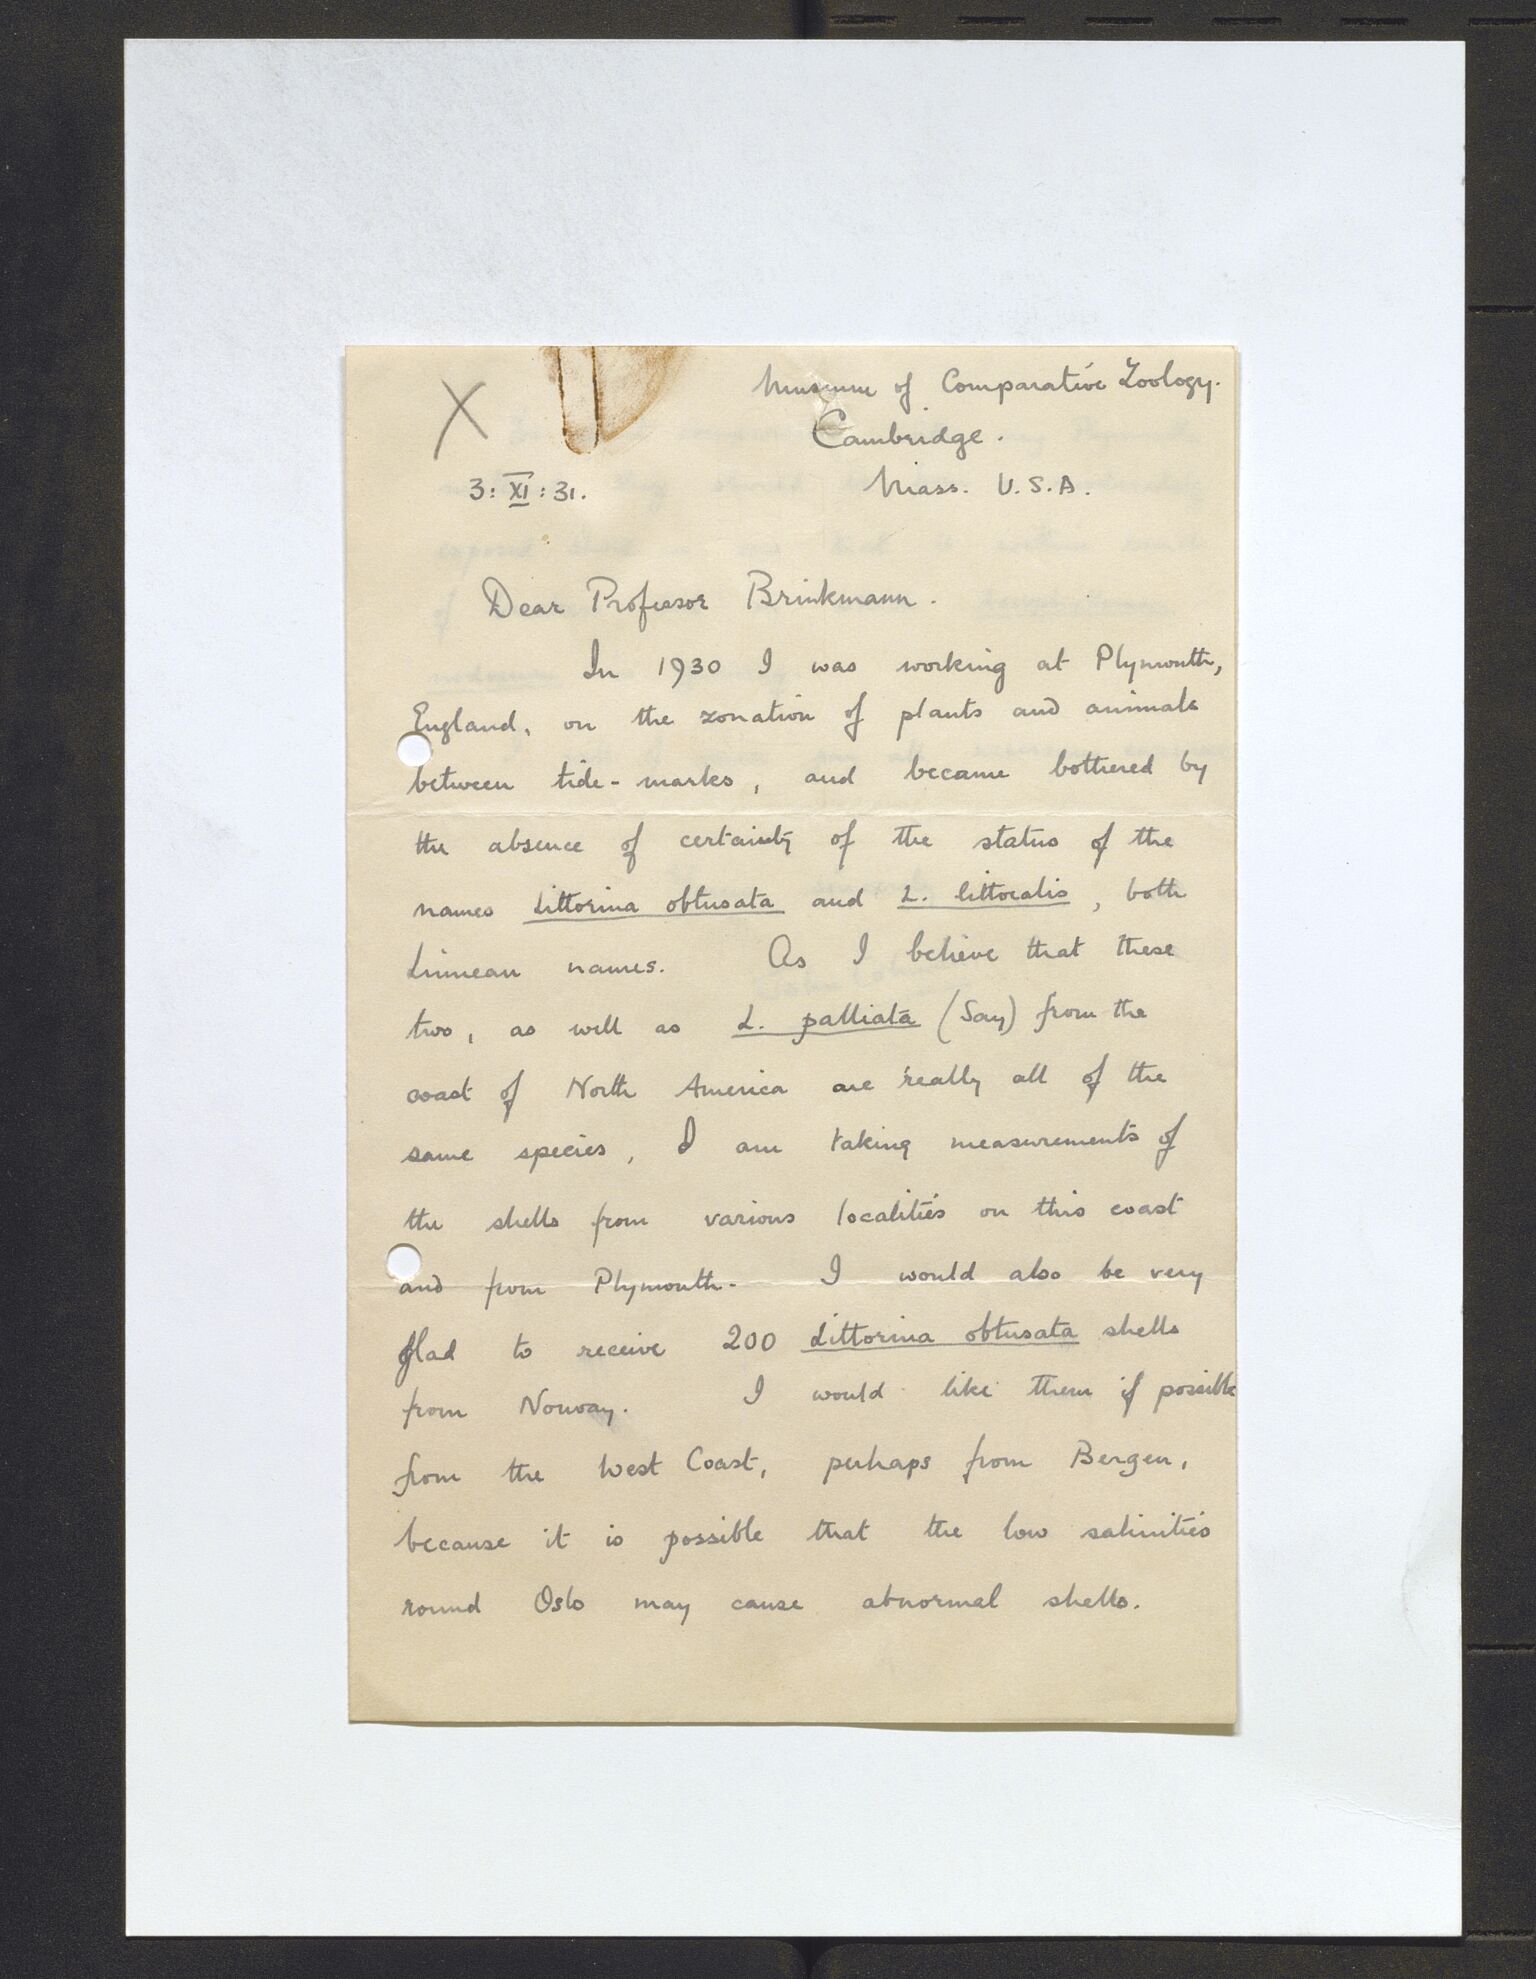 X
Museum of Comparative Zoology.
Cambridge.
3: XI : 31.
Mass. U.S.A.
Dear Professor Brinkmann.
In 1930 I was working at Plymouth,
England, on the zonation of plants and animals
between tide-marks, and became bothered by
the absence of certainty of the status of the
names Littorina obtusata and L. littoralis, both
Linnean names. As I believe that these
two, as well as L. palliata (Say) from the
coast of North America are really all of the
same species, I am taking measurements of
the shells from various localities on this coast
and from Plymouth. I would also be very
glad to receive 200 Littorina obtusata shells
from Norway. I would like them if possible
from the West Coast, perhaps from Bergen,
because it is possible that the low salinities
round Oslo may cause abnormal shells.